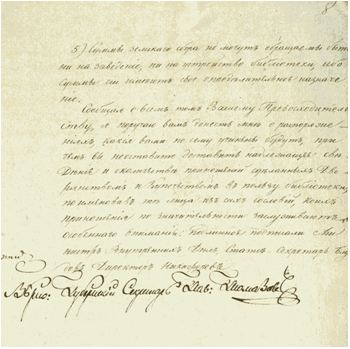 5) Суммы земскаго сбора не могутъ обращаемы быть
ни на заведеніе, ни на устройство библіотеки, ибо
суммы сіи имѣютъ свое опредѣлительное назначе
ніе.
Сообщая о всемъ томъ Вашему Превосходитель
ству, я поручаю вамъ донесть мнѣ о распоряже
ніяхъ, какія вами по сему учинены будутъ, при
чемъ вы не оставите доставить надлежащія свѣ
дѣнія и о количествѣ приношеній сдѣланныхъ Дво
рянствомъ и Купечествомъ въ пользу библіотеки,
поименовавъ тѣ лица изъ сихъ сословій, коихъ
приношенія по значительности заслуживаютъ
особеннаго вниманія. Подлинное подписали: Ми
нистръ Внутреннихъ Дѣлъ, Статсъ Секретарь Блу
довъ, Директоръ
Вѣрно: Губернскій Секретарь